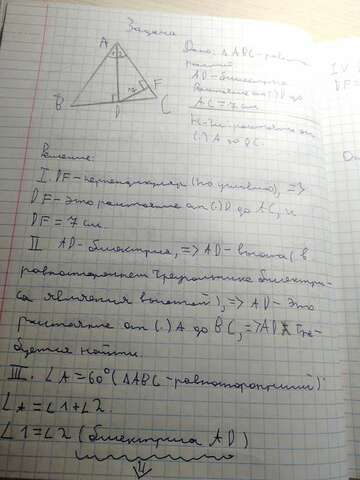 Задача
A
1 2
7
F
B
D
C
Дано: ΔABC - равно-
AD - биссектриса
Расстояние от (.) D до
AC = 7 см
Н-ти: расстояние от
(.) A до BC.
IV
DF =
Решение:
I. DF - перпендикуляр (по условию), =>
DF - это расстояние от (.) D до AC, и
DF = 7 см.
II AD - биссектриса, => AD - высота (в
равностороннем треугольнике биссектри-
са является высотой), => AD - это
расстояние от (.) A до BC, => AD тре-
буется найти.
III. ∠A = 60° (ΔABC - равносторонний)
∠A = ∠1 + ∠2
∠1 = ∠2 (биссектриса AD)